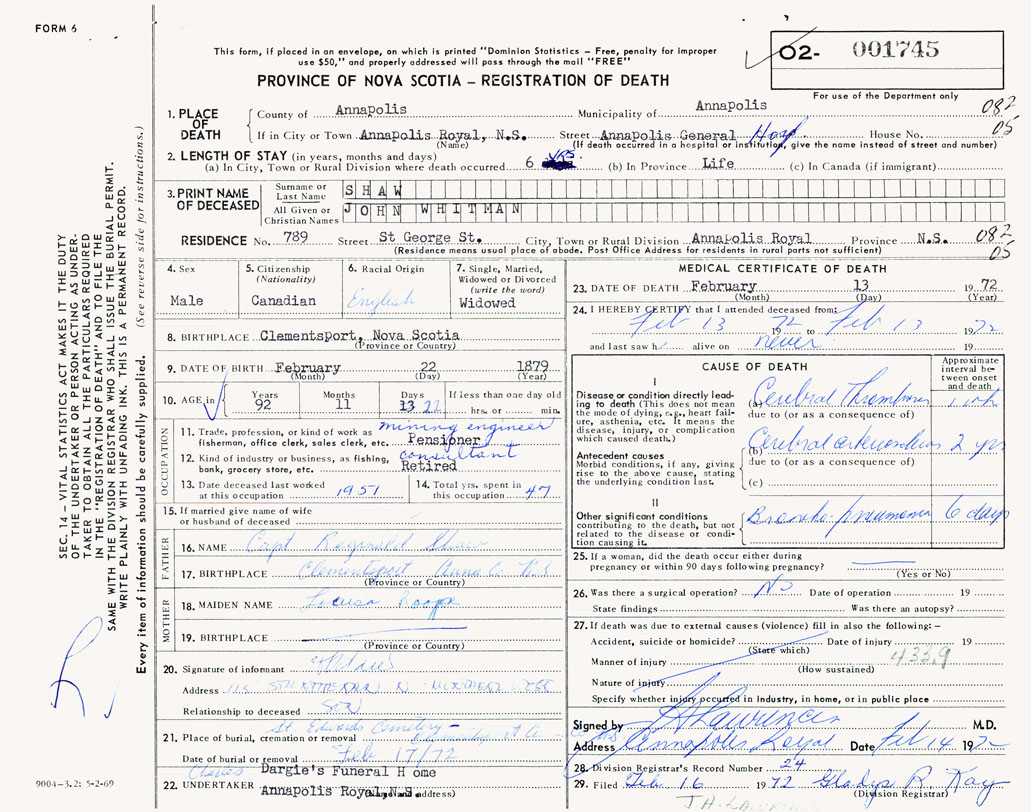 FORM 6
This form, if placed in an envelope, on which is printed "Dominion Statistics – Free, penalty for improper
use $50," and properly addressed will pass through the mail "FREE"
PROVINCE OF NOVA SCOTIA – REGISTRATION OF DEATH
O2- 001745
For use of the Department only
082
05
1. PLACE OF DEATH
County of Annapolis Municipality of Annapolis
If in City or Town Annapolis Royal, N.S. Street Annapolis General Hosp House No.
(Name) (If death occurred in a hospital or institution, give the name instead of street and number)
2. LENGTH OF STAY (in years, months and days)
(a) In City, Town or Rural Division where death occurred 6 YRS. (b) In Province Life (c) In Canada (if immigrant)
3. PRINT NAME OF DECEASED
Surname or Last Name SHAW
All Given or Christian Names JOHN WHITMAN
RESIDENCE No. 789 Street St George St. City, Town or Rural Division Annapolis Royal Province N.S. 082
05
(Residence means usual place of abode. Post Office Address for residents in rural parts not sufficient)
4. Sex Male
5. Citizenship (Nationality) Canadian
6. Racial Origin English
7. Single, Married, Widowed or Divorced (write the word) Widowed
8. BIRTHPLACE Clementsport, Nova Scotia
(Province or Country)
9. DATE OF BIRTH February 22 1879
(Month) (Day) (Year)
10. AGE in Years 92 Months 11 Days 13 22 If less than one day old hrs. or min.
OCCUPATION
11. Trade, profession, or kind of work as fisherman, office clerk, sales clerk, etc. mining engineer Pensioner
12. Kind of industry or business, as fishing, bank, grocery store, etc. consultant Retired
13. Date deceased last worked at this occupation 1951
14. Total yrs. spent in this occupation 47
15. If married give name of wife or husband of deceased
FATHER
16. NAME Capt Reginald Shaw
17. BIRTHPLACE Clementsport Anna Co. N.S
(Province or Country)
MOTHER
18. MAIDEN NAME Louisa Roop
19. BIRTHPLACE
(Province or Country)
20. Signature of informant
Address
Relationship to deceased SON
21. Place of burial, cremation or removal St. Edwards Cemetery –
Date of burial or removal Feb 17/72
22. UNDERTAKER Dargie's Funeral Home
Annapolis Royal, N.S.
(Name and address)
MEDICAL CERTIFICATE OF DEATH
23. DATE OF DEATH February 13 19 72
(Month) (Day) (Year)
24. I HEREBY CERTIFY that I attended deceased from:
Feb 13 1972 to Feb 13 1972
and last saw h alive on never 19
CAUSE OF DEATH
Approximate interval between onset and death
I
Disease or condition directly leading to death (This does not mean the mode of dying, e.g., heart failure, asthenia, etc. It means the disease, injury, or complication which caused death.)
(a) Cerebral Thrombosis 1 wk
due to (or as a consequence of)
Antecedent causes
Morbid conditions, if any, giving rise to the above cause, stating the underlying condition last.
(b) Cerebral 2 yrs
due to (or as a consequence of)
(c)
II
Other significant conditions contributing to the death, but not related to the disease or condition causing it.
Broncho-pneumonia 6 days
25. If a woman, did the death occur either during pregnancy or within 90 days following pregnancy?
(Yes or No)
26. Was there a surgical operation? No Date of operation 19
State findings Was there an autopsy?
27. If death was due to external causes (violence) fill in also the following: –
Accident, suicide or homicide? Date of injury 19
(State which)
Manner of injury 433.9
(How sustained)
Nature of injury
Specify whether injury occurred in industry, in home, or in public place
Signed by Lawrence M.D.
Address Annapolis Royal Date Feb 14 1972
28. Division Registrar's Record Number 24
29. Filed Feb 16 1972 Gladys R. Kay
(Division Registrar)
SEC. 14 – VITAL STATISTICS ACT MAKES IT THE DUTY
OF THE UNDERTAKER OR PERSON ACTING AS UNDER-
TAKER TO OBTAIN ALL THE PARTICULARS REQUIRED
IN THE "REGISTRATION OF DEATH" AND TO FILE THE
SAME WITH THE DIVISION REGISTRAR WHO SHALL ISSUE THE BURIAL PERMIT.
WRITE PLAINLY WITH UNFADING INK. THIS IS A PERMANENT RECORD.
Every item of information should be carefully supplied. (See reverse side for instructions.)
9004-3.2: 5-2-69